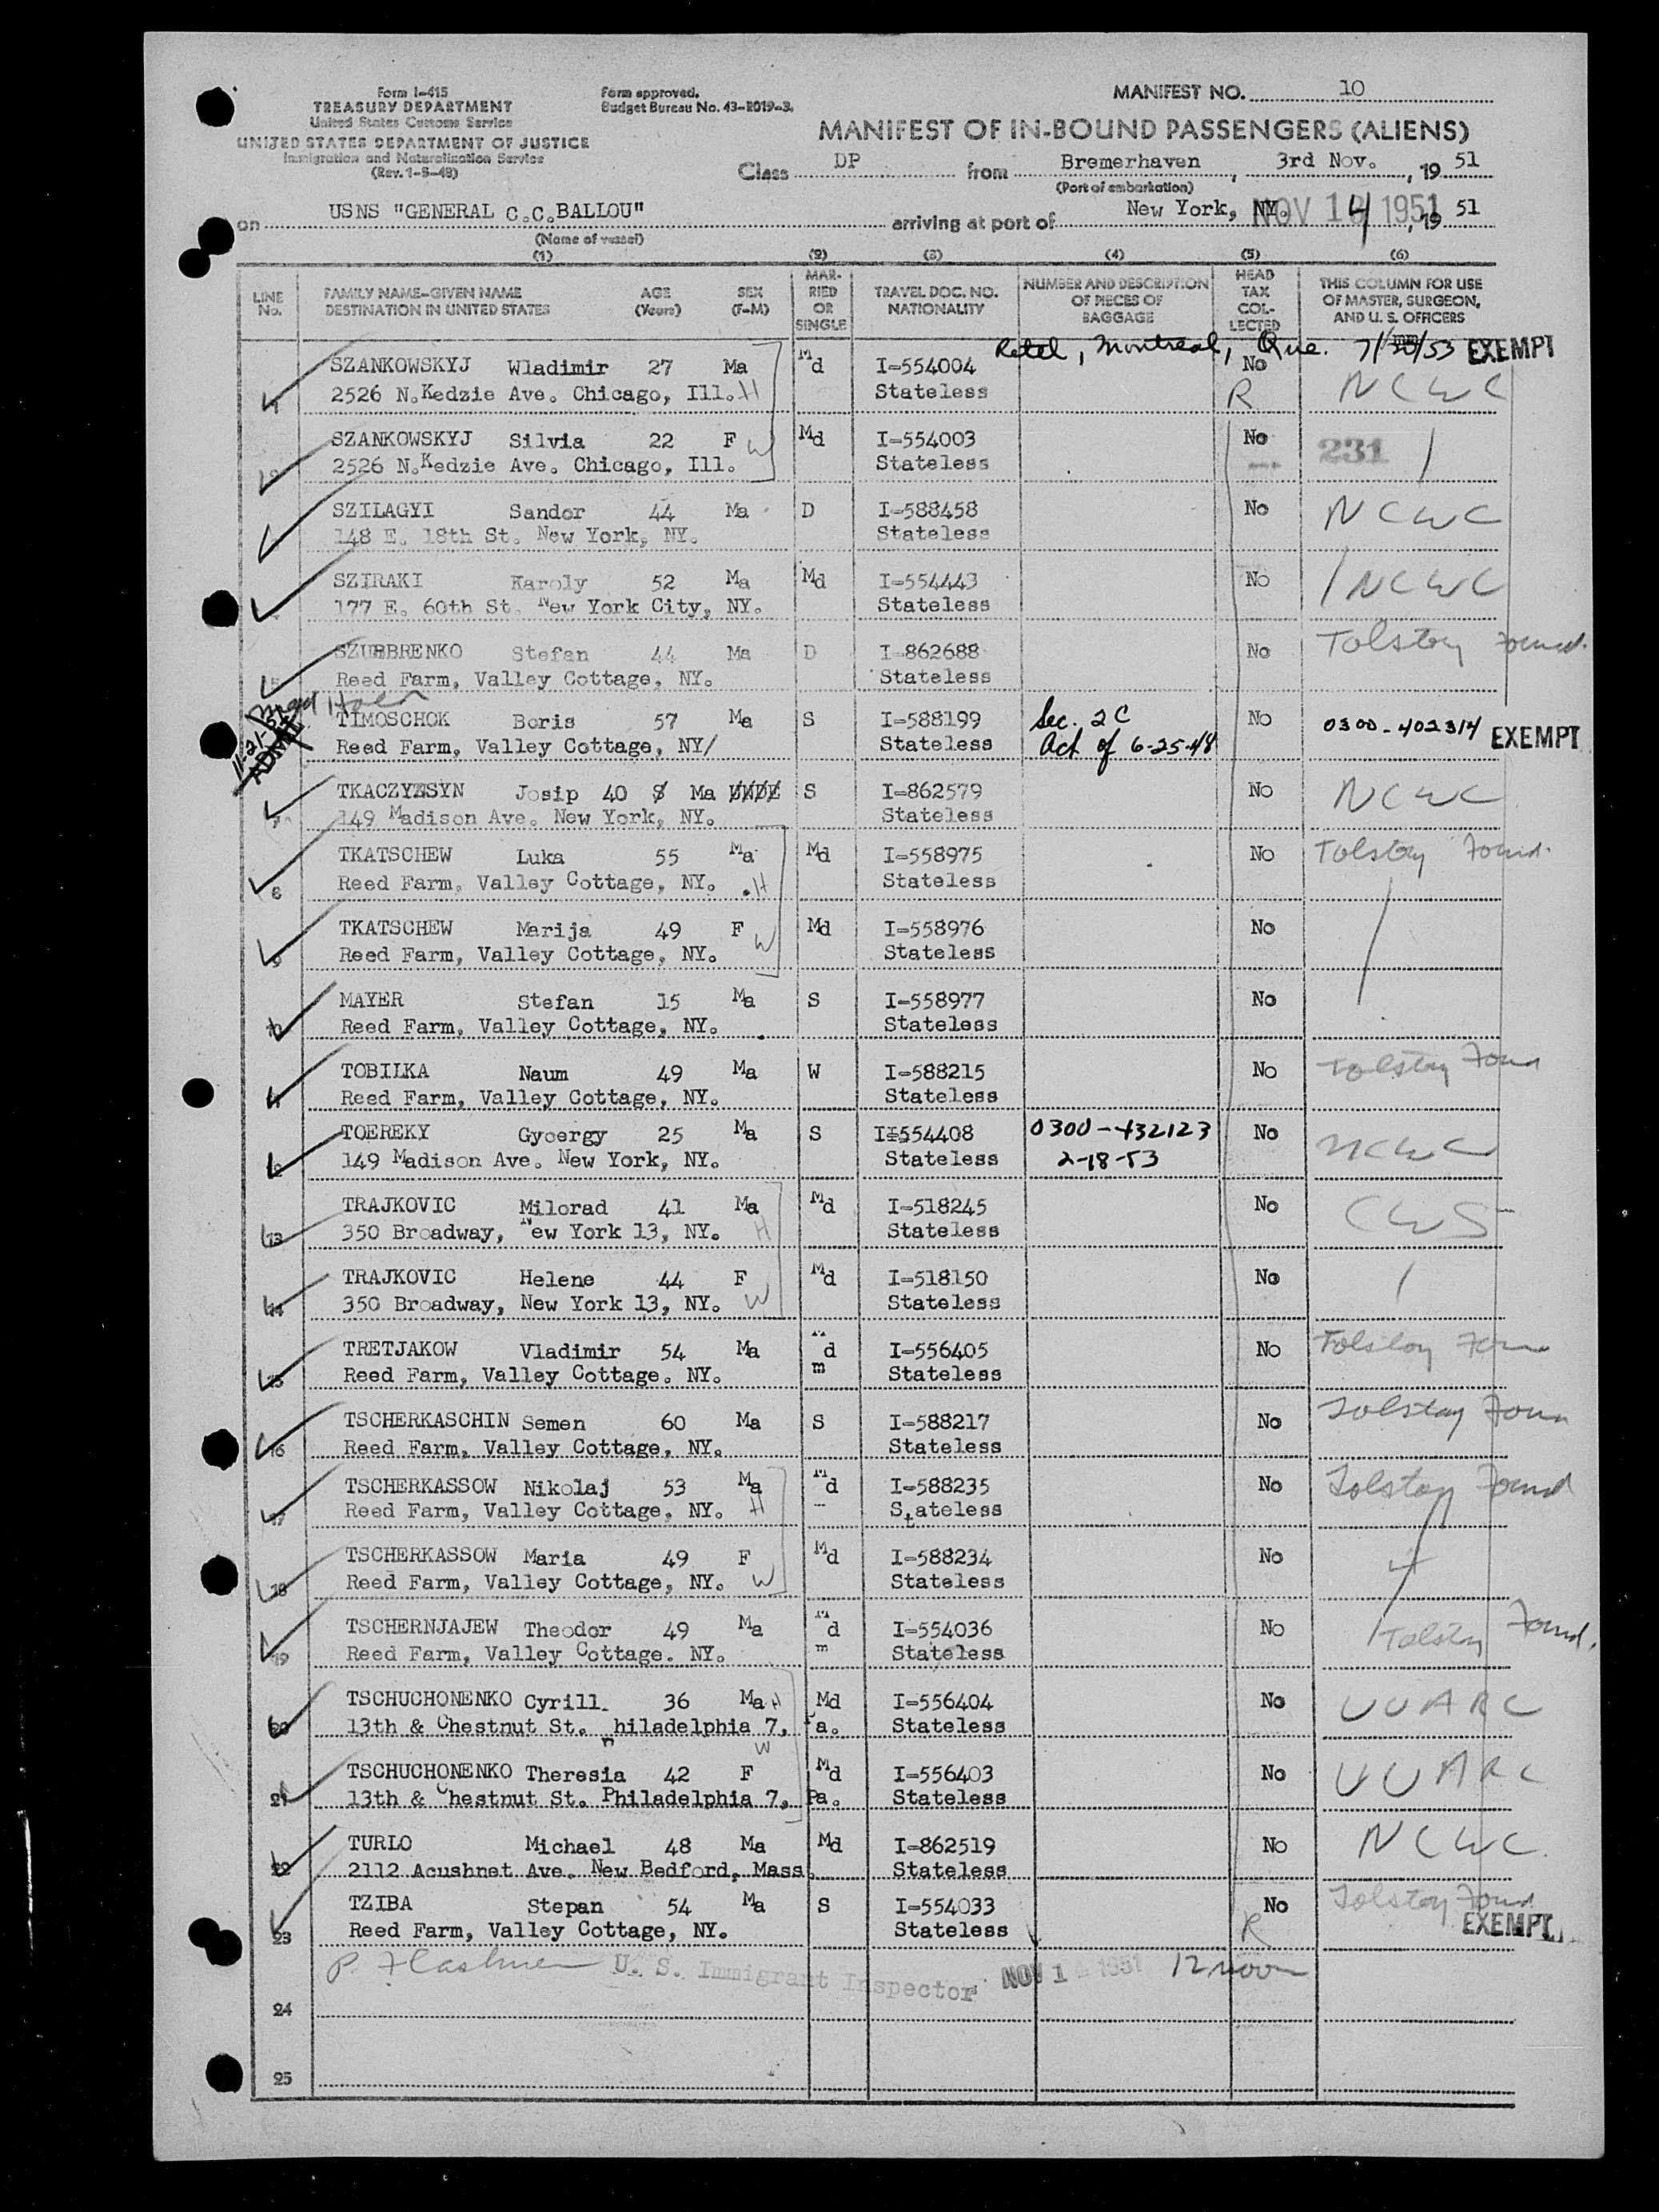 Form I-415
TREASURY DEPARTMENT
United States Customs Service
UNITED STATES DEPARTMENT OF JUSTICE
Immigration and Naturalization Service
(Rev. 1-5-48)
Form approved.
Budget Bureau No. 43-R019-3.
MANIFEST NO. 10
MANIFEST OF IN-BOUND PASSENGERS (ALIENS)
Class DP from Bremerhaven, 3rd Nov., 19 51
(Port of embarkation)
on USNS "GENERAL C.C.BALLOU" arriving at port of New York, NY. NOV 14 1951, 19 51
(Name of vessel)
(1) (2) (3) (4) (5) (6)
LINE No. FAMILY NAME—GIVEN NAME DESTINATION IN UNITED STATES AGE (Years) SEX (F-M) MARRIED OR SINGLE TRAVEL DOC. NO. NATIONALITY NUMBER AND DESCRIPTION OF PIECES OF BAGGAGE HEAD TAX COLLECTED THIS COLUMN FOR USE OF MASTER, SURGEON, AND U. S. OFFICERS
Retd, Montreal, Que. 7/30/53 EXEMPT
SZANKOWSKYJ Wladimir 27 Ma Md I-554004 No
2526 N.Kedzie Ave. Chicago, Ill. H Stateless R NCWC
SZANKOWSKYJ Silvia 22 F W Md I-554003 No 231
2526 N.Kedzie Ave. Chicago, Ill. Stateless
SZILAGYI Sandor 44 Ma D I-588458 No NCWC
148 E. 18th St. New York, NY. Stateless
SZIRAKI Karoly 52 Ma Md I-554443 No NCWC
177 E. 60th St. New York City, NY. Stateless
5 Stefan 44 Ma D I-862688 No Tolstoy Found.
Reed Farm, Valley Cottage, NY. Stateless
TIMOSCHOK Boris 57 Ma S I-588199 Sec. 2C No 0300-402314 EXEMPT
Reed Farm, Valley Cottage, NY/ Stateless Act of 6-25-48
11-21-51 ADMIT.
7 TKACZYZSYN Josip 40 S Ma S I-862579 No NCWC
149 Madison Ave. New York, NY. Stateless
TKATSCHEW Luka 55 Ma Md I-558975 No Tolstoy Found.
8 Reed Farm, Valley Cottage, NY. H Stateless
TKATSCHEW Marija 49 F W Md I-558976 No
9 Reed Farm, Valley Cottage, NY. Stateless
MAYER Stefan 15 Ma S I-558977 No
10 Reed Farm, Valley Cottage, NY. Stateless
TOBILKA Naum 49 Ma W I-588215 No Tolstoy Foun
11 Reed Farm, Valley Cottage, NY. Stateless
TOEREKY Gyoergy 25 Ma S I-554408 0300-432123 No NCWC
12 149 Madison Ave. New York, NY. Stateless 2-18-53
TRAJKOVIC Milorad 41 Ma Md I-518245 No CWS
13 350 Broadway, New York 13, NY. H Stateless
TRAJKOVIC Helene 44 F Md I-518150 No
14 350 Broadway, New York 13, NY. W Stateless
TRETJAKOW Vladimir 54 Ma d I-556405 No Tolstoy Foun
15 Reed Farm, Valley Cottage. NY. m Stateless
TSCHERKASCHIN Semen 60 Ma S I-588217 No Tolstoy Foun
16 Reed Farm, Valley Cottage, NY. Stateless
TSCHERKASSOW Nikolaj 53 Ma Md I-588235 No Tolstoy Found
17 Reed Farm, Valley Cottage, NY. H Stateless
TSCHERKASSOW Maria 49 F Md I-588234 No
18 Reed Farm, Valley Cottage, NY. W Stateless
TSCHERNJAJEW Theodor 49 Ma Md I-554036 No
19 Reed Farm, Valley Cottage. NY. m Stateless Tolstoy Found.
TSCHUCHONENKO Cyrill. 36 Ma H Md I-556404 No UUARC
20 13th & Chestnut St. Philadelphia 7, Pa. Stateless
TSCHUCHONENKO Theresia 42 F W Md I-556403 No UUARC
21 13th & Chestnut St. Philadelphia 7, Pa. Stateless
TURLO Michael 48 Ma Md I-862519 No NCWC
22 2112 Acushnet Ave. New Bedford, Mass. Stateless
TZIBA Stepan 54 Ma S I-554033 No Tolstoy Foun
23 Reed Farm, Valley Cottage, NY. Stateless R EXEMPT
U. S. Immigrant Inspector NOV 14 1951 12 noon
24
25